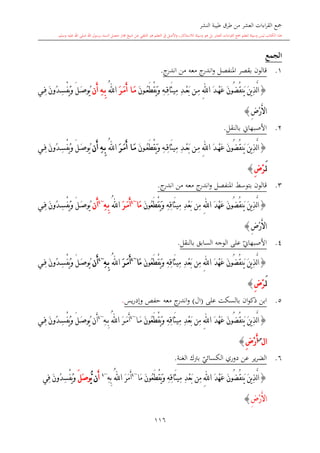 جمع القراءات العشر من طرق طيبة النشر
الجمع
١. قالون بقصر المنفصل واندرج معه من اندرج.
﴿ الَّذِينَ يَنْقُضُونَ عَهْدَ اللهِ مِنْ بَعْدِ مِيثَاقِهِ وَيَقْطَعُونَ مَا أَمَرَ اللهُ بِهِ أَنْ يُوصَلَ وَيُفْسِدُونَ فِي
الْأَرْضِ ﴾
٢. الأصبهاني بالنقل.
﴿ الَّذِينَ يَنْقُضُونَ عَهْدَ اللهِ مِنْ بَعْدِ مِيثَاقِهِ وَيَقْطَعُونَ مَا أَمَرَ اللهُ بِهِ أَنْ يُوصَلَ وَيُفْسِدُونَ فِي
﴾
٣. قالون بتوسط المنفصل واندرج معه من اندرج.
﴿ الَّذِينَ يَنْقُضُونَ عَهْدَ اللهِ مِنْ بَعْدِ مِيثَاقِهِ وَيَقْطَعُونَ مَا أَمَرَ اللهُ بِهِ أَنْ يُوصَلَ وَيُفْسِدُونَ فِي
الْأَرْضِ ﴾
٤. الأصبهانيّ على الوجه السابق بالنقل.
﴿ الَّذِينَ يَنْقُضُونَ عَهْدَ اللهِ مِنْ بَعْدِ مِيثَاقِهِ وَيَقْطَعُونَ مَا أَمَرَ اللهُ بِهِ أَنْ يُوصَلَ وَيُفْسِدُونَ فِي
﴾
٥. ابن ذكوان بالسكت على (ال) واندرج معه حفص وإدريس.
﴿ الَّذِينَ يَنْقُضُونَ عَهْدَ اللهِ مِنْ بَعْدِ مِيثَاقِهِ وَيَقْطَعُونَ مَا أَمَرَ اللهُ بِهِ أَنْ يُوصَلَ وَيُفْسِدُونَ فِي
الْأَرْضِ ﴾
٦. الضرير عن دوري الكسائيّ بترك الغنة.
﴿ الَّذِينَ يَنْقُضُونَ عَهْدَ اللهِ مِنْ بَعْدِ مِيثَاقِهِ وَيَقْطَعُونَ مَا أَمَرَ اللهُ بِهِ أَن يُّوصَلَ وَيُفْسِدُونَ فِي
الْأَرْضِ ﴾
١١٦